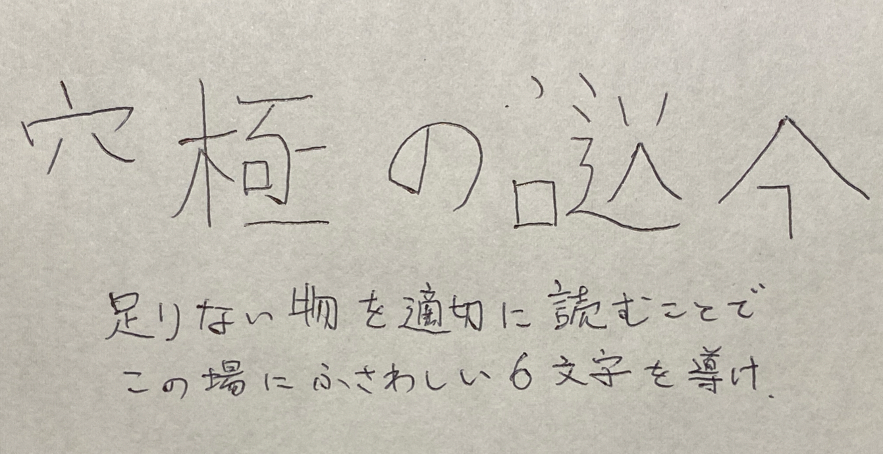 穴極の謎今
足りない物を適切に読むことで
この場にふさわしい6文字を導け.